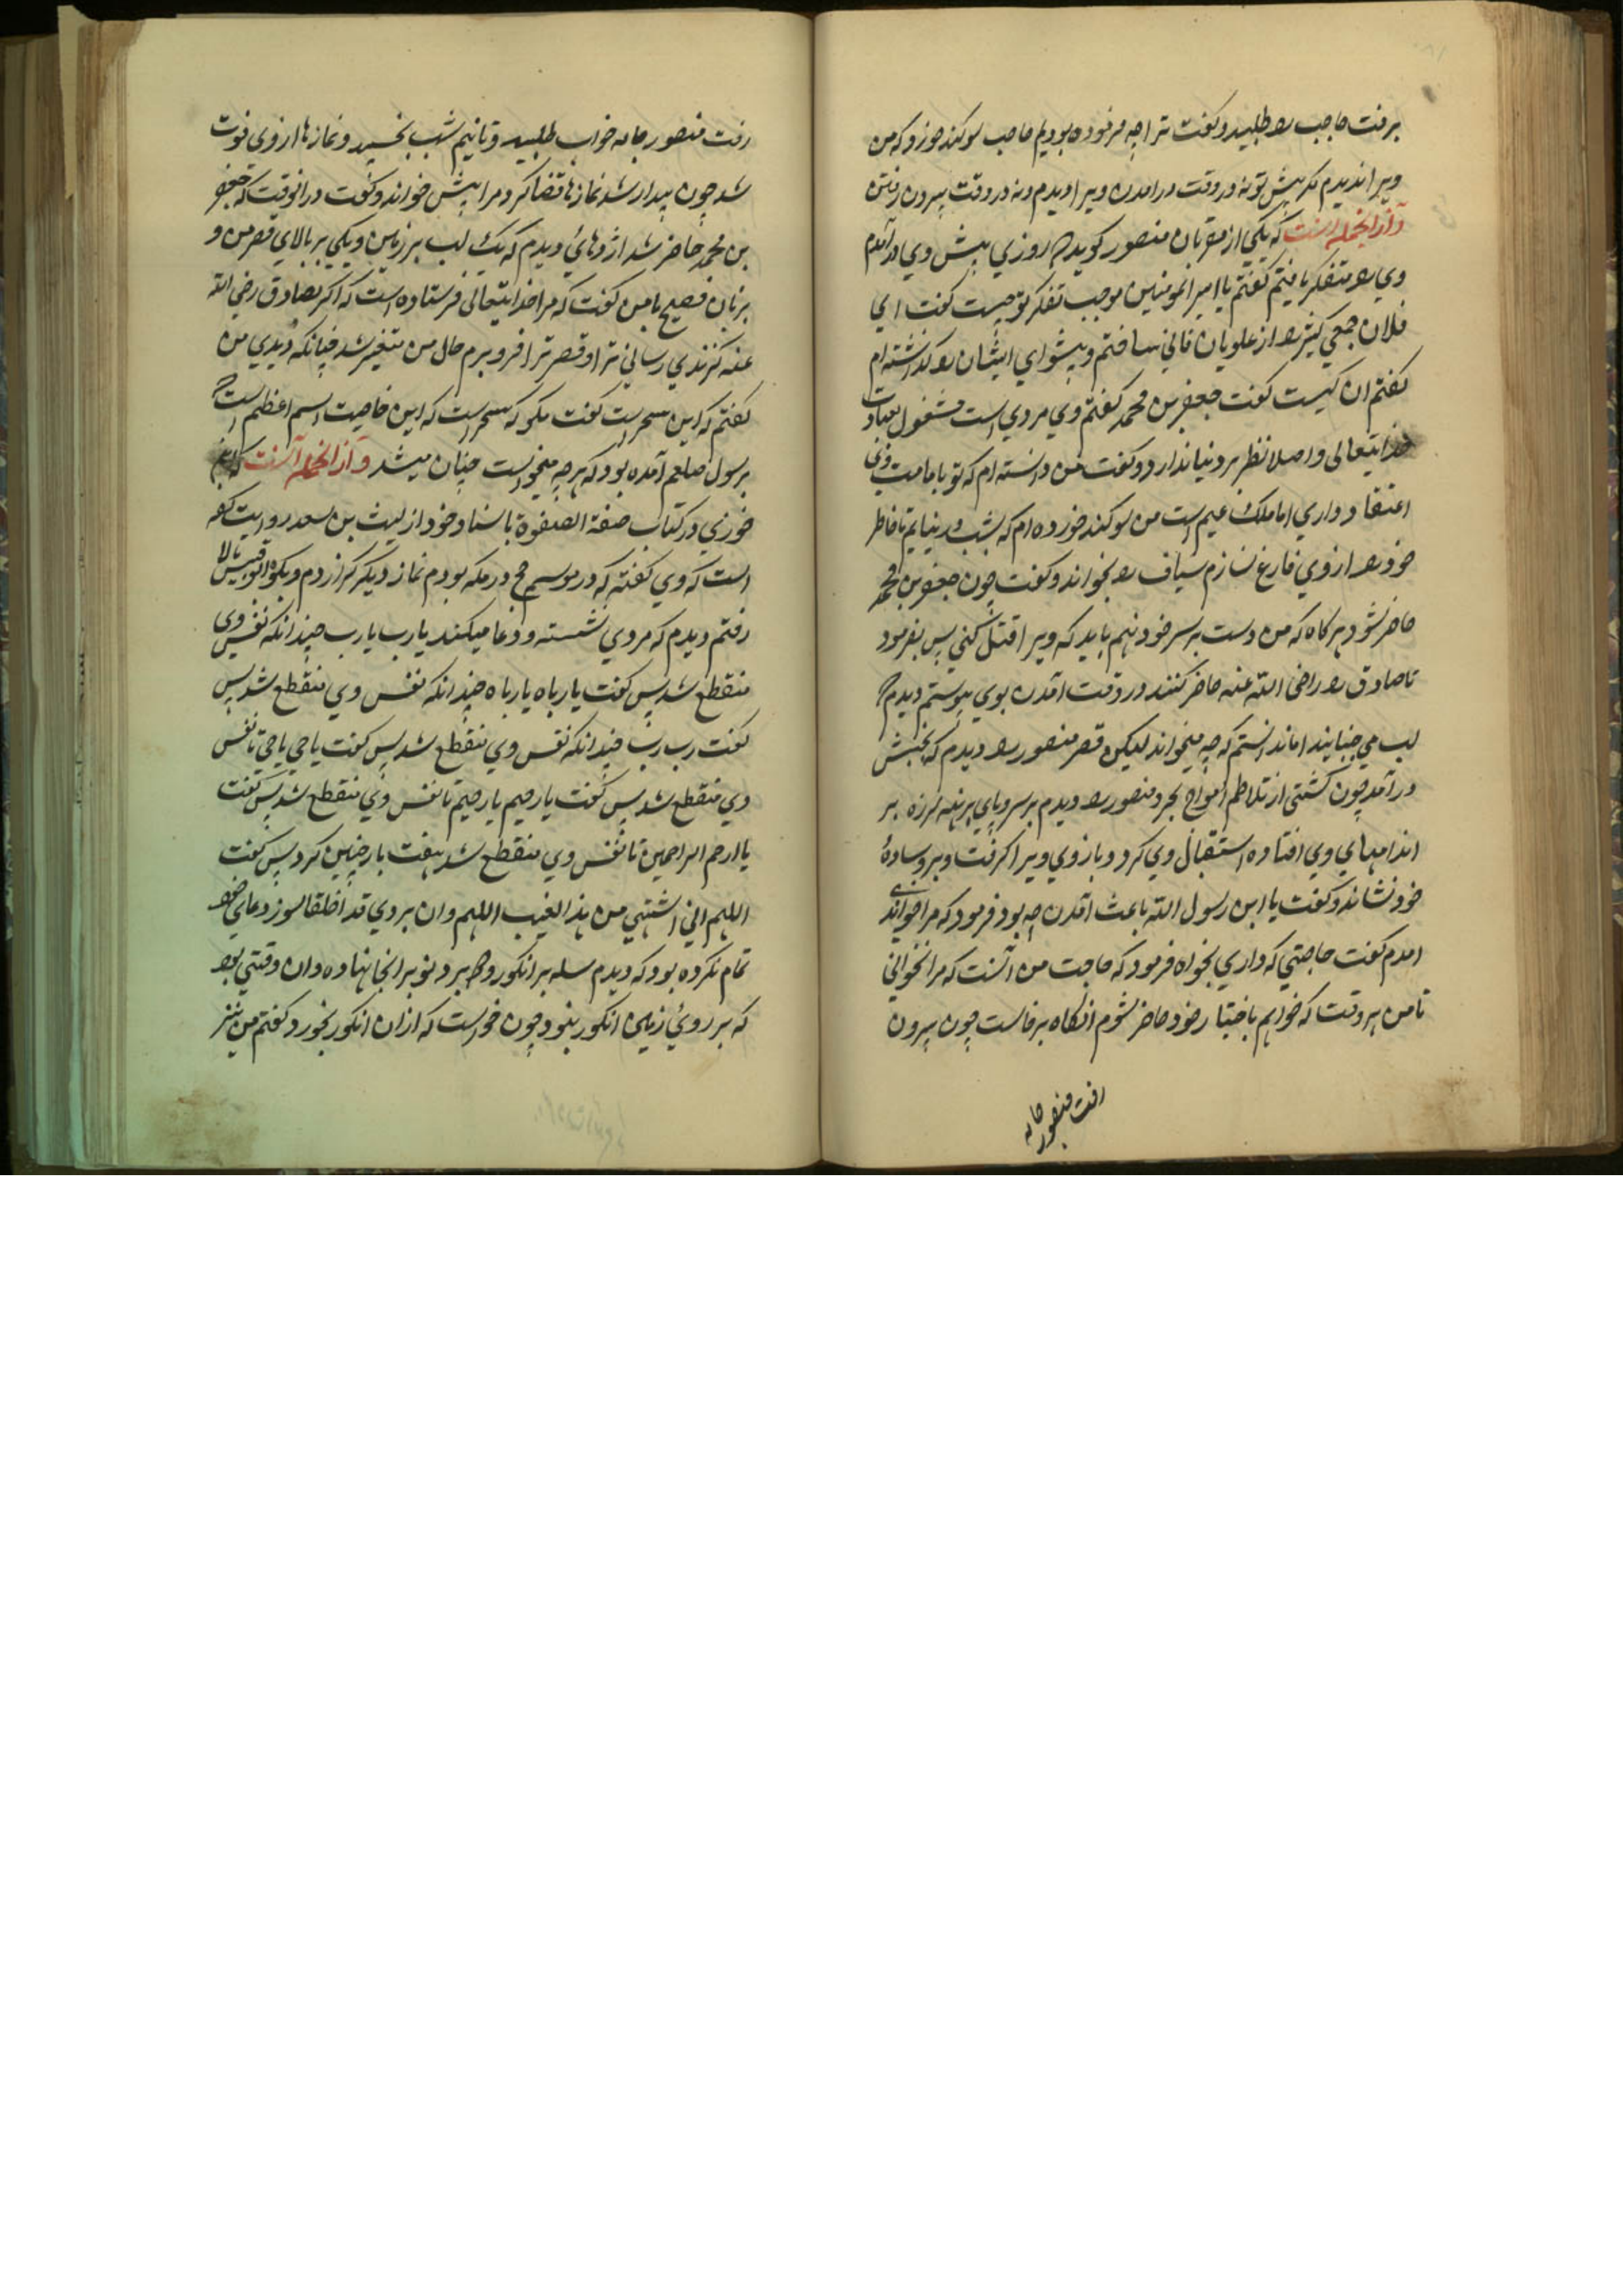 برفت حاجب را طلبید و گفت ترا چه فرموده بودم حاجب سوگند خورد که من
ویرا ندیدم مگر پیش تو نه در وقت در امدن ویرا دیدم و نه در وقت بیرون رفتن
و از انجمله است که یکی از مقربان منصور گوید که روزی پیش وی در آمدم
وی را متفکر یافتم گفتم یا امیر المومنین موجب تفکر تو چیست گفت ای
فلان جمعی کثیر را از علویان فانی ساختم و پیشوای ایشان را گذاشته ام
گفتم ان کیست گفت جعفر بن محمد گفتم وی مردی است مشغول بعبادت
خدایتعالی و اصلا نظر بر دنیا ندارد و گفت من دانسته ام که تو بامامت وی
اعتقاد داری اما ملک عیم است من سوگند خورده ام که شب در نیایم تا خاطر
خود را از وی فارغ نسازم سیاف را بخواند و گفت چون جعفر بن محمد
حاضر شود هر گاه که من دست بر سر خود نهم باید که ویرا قتل کنی پس بفرمود
تا صادق را رضی الله عنه حاضر کنند در وقت آمدن بوی پیوستم دیدم که
لب می جنبانید اما ندانستم که چه میخواند لیکن قصر منصور را دیدم که بجنبش
در آمد چون کشتی از تلاطم امواج بحر و منصور را دیدم بر سر و پای برهنه لرزه بر
اندامهای وی افتاده استقبال وی کرد و بازوی ویرا گرفت و بر وساده
خود نشاند و گفت یا ابن رسول الله باعث آمدن چه بود فرمود که مرا خواندی
امدم گفت حاجتی که داری بخواه فرمود که حاجت من آنست که مرا نخوانی
تا من هر وقت که خواهم باختیار خود حاضر شوم انگاه برخاست چون بیرون
رفت منصور جامه
رفت منصور جامه خواب طلبید و تا نیم شب بخسپید و نمازها از وی فوت
شد چون بیدار شد نمازها قضا کرد و مرا پیش خواند و گفت در انوقت که جعفر
بن محمد حاضر شد اژدهائی دیدم که یک لب بر زمین و یکی بر بالای قصر من و
بزبان فصیح با من گفت که مرا خدایتعالی فرستاده است که اگر بصادق رضی الله
عنه گزندی رسانی ترا و قصر ترا فرو برم حال من متغیر شد چنانکه دیدی من
گفتم که این سحر است گفت مگو که سحر است که این خاصیت اسم اعظم است که
برسول صلعم آمده بود که هر چه میخواست چنان میشد و از انجمله آنست که ابن
جوزی در کتاب صفة الصفوة باسناد خود از لیث بن سعد روایت کرده
است که وی گفته که در موسم حج در مکه بودم نماز دیگر گزاردم و بکوه ابوقبیس بالا
رفتم دیدم که مردی نشسته و دعا میکند یا رب یا رب چندانکه نفس وی
منقطع شد پس گفت یا رباه یا رباه چندانکه نفس وی منقطع شد پس
گفت رب رب چندانکه نفس وی منقطع شد پس گفت یا حی یا حی تا نفس
وی منقطع شد پس گفت یا رحیم یا رحیم تا نفس وی منقطع شد پس گفت
یا ارحم الراحمین تا نفس وی منقطع شد هفت بار چنین کرد پس گفت
اللهم انی اشتهی من هذا العنب اللهم وان بردی قد اخلقا هنوز دعای خود
تمام نکرده بود که دیدم سله پر انگور و دو برد نو بر انجا نهاده و ان وقتی بود
که بر روی زمین انگور نبود چون خواست که ازان انگور بخورد گفتم من نیز